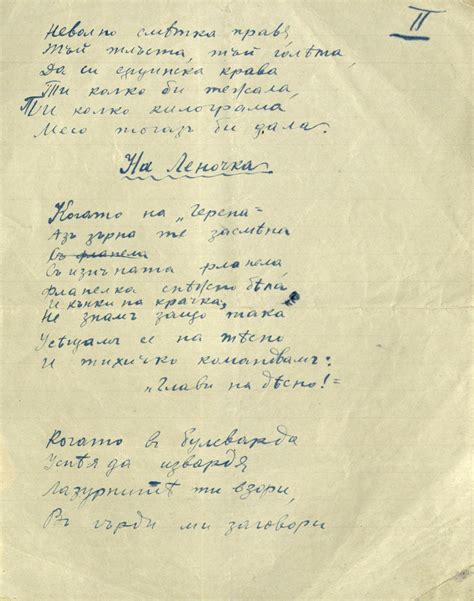 II
Неволно смѣтка правя
Тъй тлъста, тъй голѣма,
Да си една крава
Ти колко би тежала,
Ти колко килограма
Месо тогазъ би дала.
На Леночка
Когато на „Черепа"
Азъ зърна те засмѣна
Съ фланела
Съ изичката фланела
Фланелка снѣжно бѣла
И кънки на крачка,
Не знамъ защо така
Усѣщамъ се на тѣсно
И тихичко командвамъ:
„Глави на дѣсно!"
Когато въ булеварда
Успѣя да извардя
Лазурнитѣ ти взори,
Въ гърди ми заговори